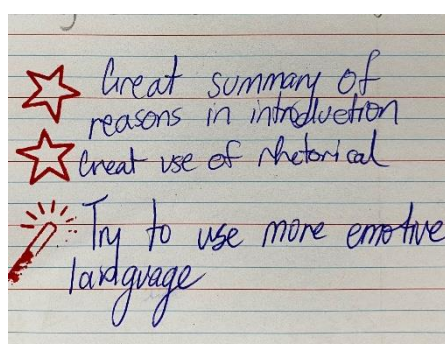 Great summary of
reasons in introduction
Great use of rhetorical
Try to use more emotive
language